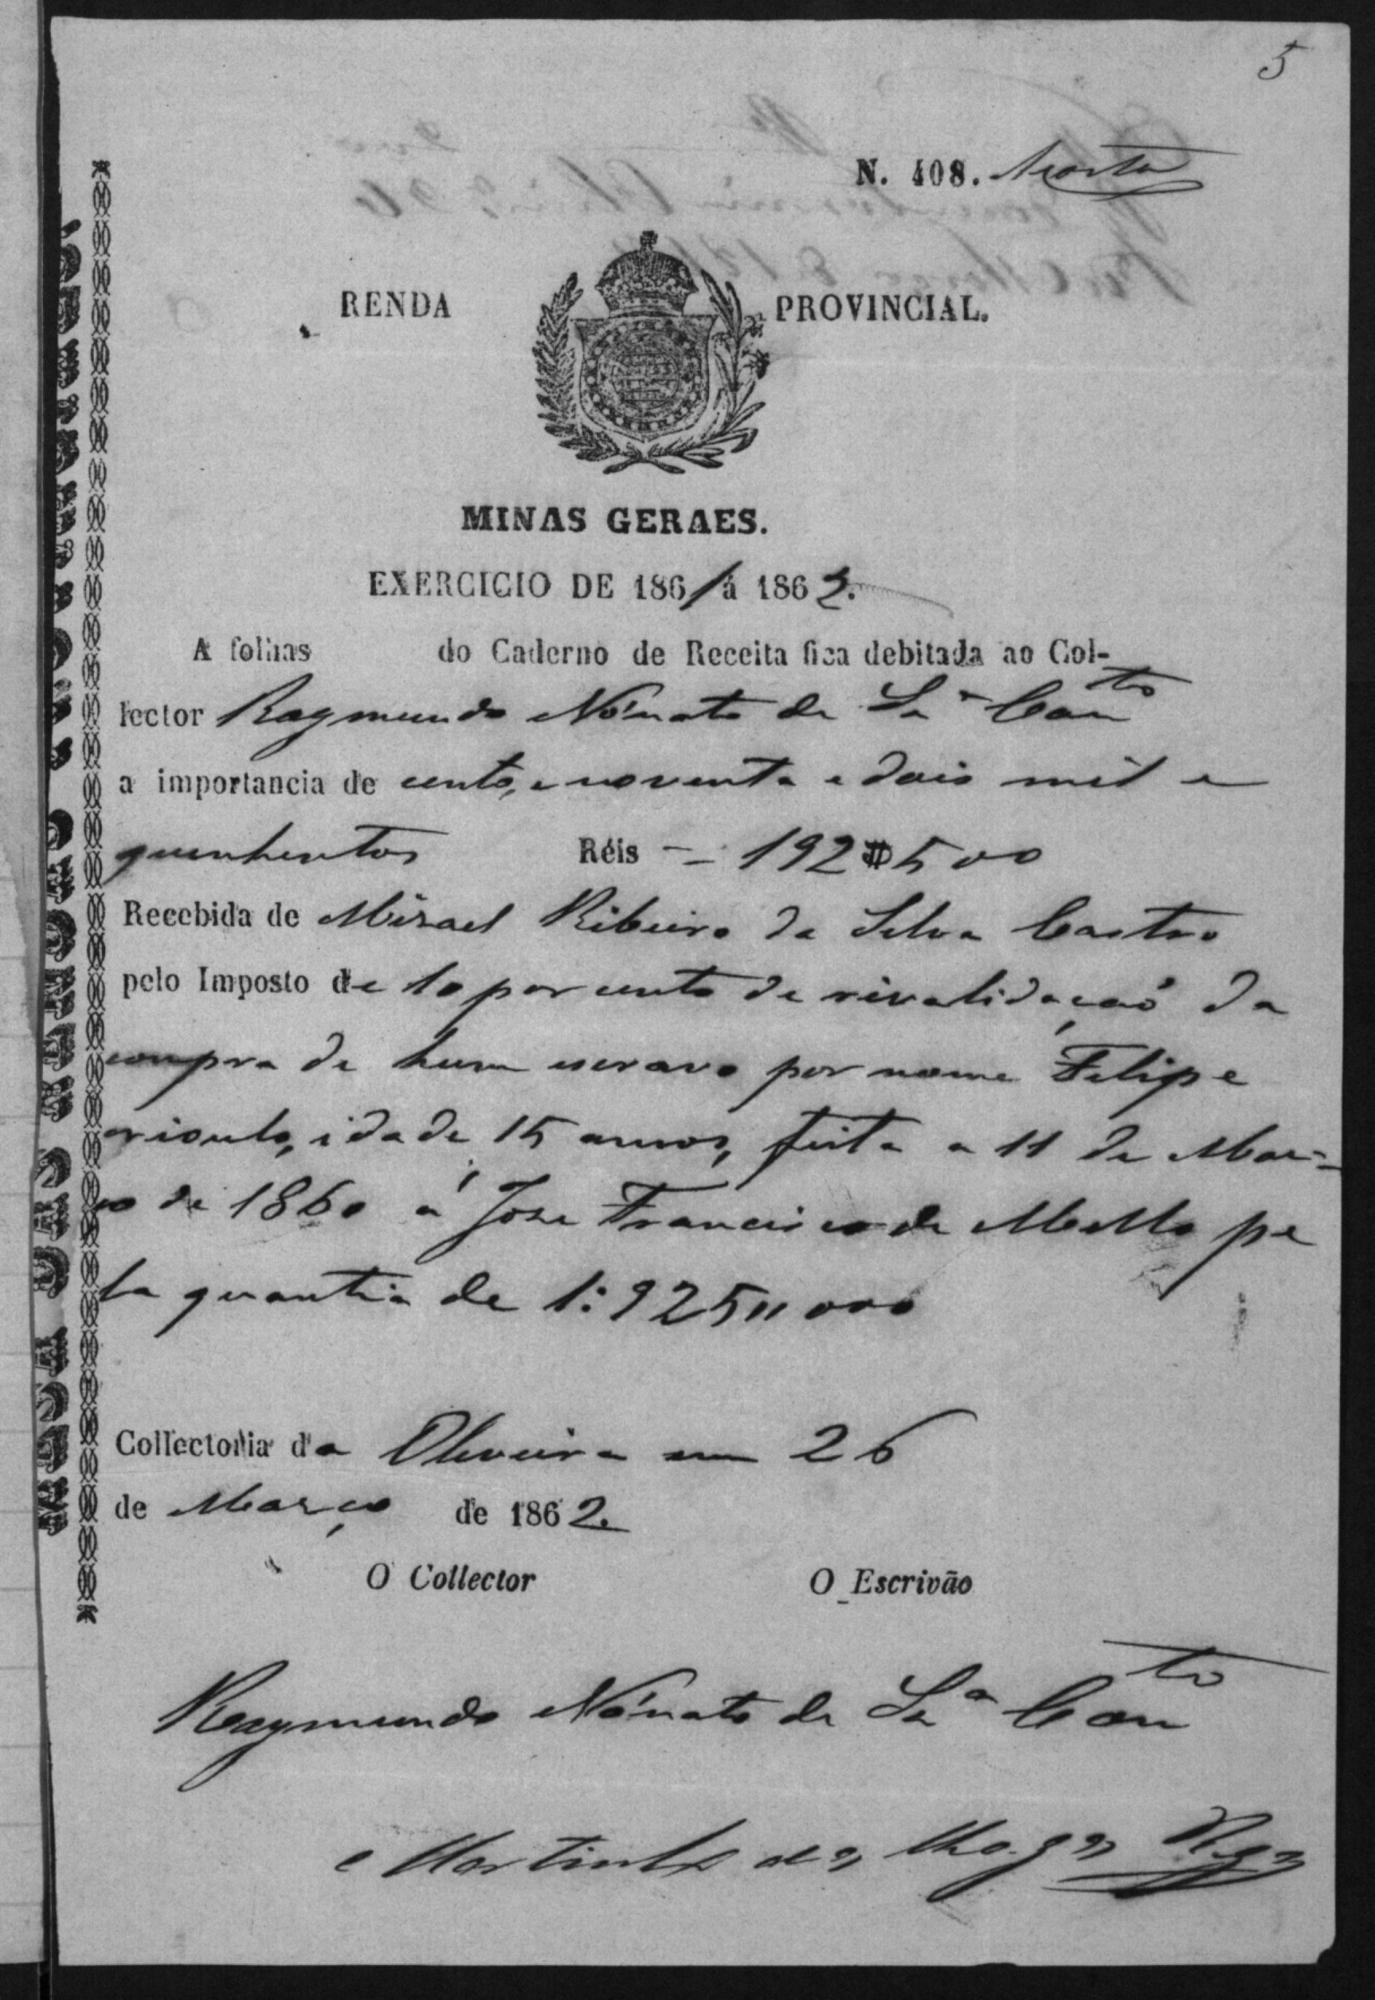 5
N. 408.
RENDA PROVINCIAL.
MINAS GERAES.
EXERCICIO DE 1861 á 1862.
A folhas do Caderno de Receita fica debitada ao Col-
lector Raymundo Nónato da Sª
a importancia de cento, e noventa e dois mil e
quinhentos Réis — 192$500
Recebida de Mizael Ribeiro da Silva Castro
pelo Imposto de 10 por cento de rivalidaçaó da
compra de hum escravo por nome Felipe
crioulo, idade 15 annos, feita a 11 de Mar-
ço de 1860 á Joze Francisco de Mello pe
la quantia de 1:925"000
Collectoria da Oliveira em 26
de Março de 1862.
O Collector O Escrivão
Raymundo Nónato da Sª